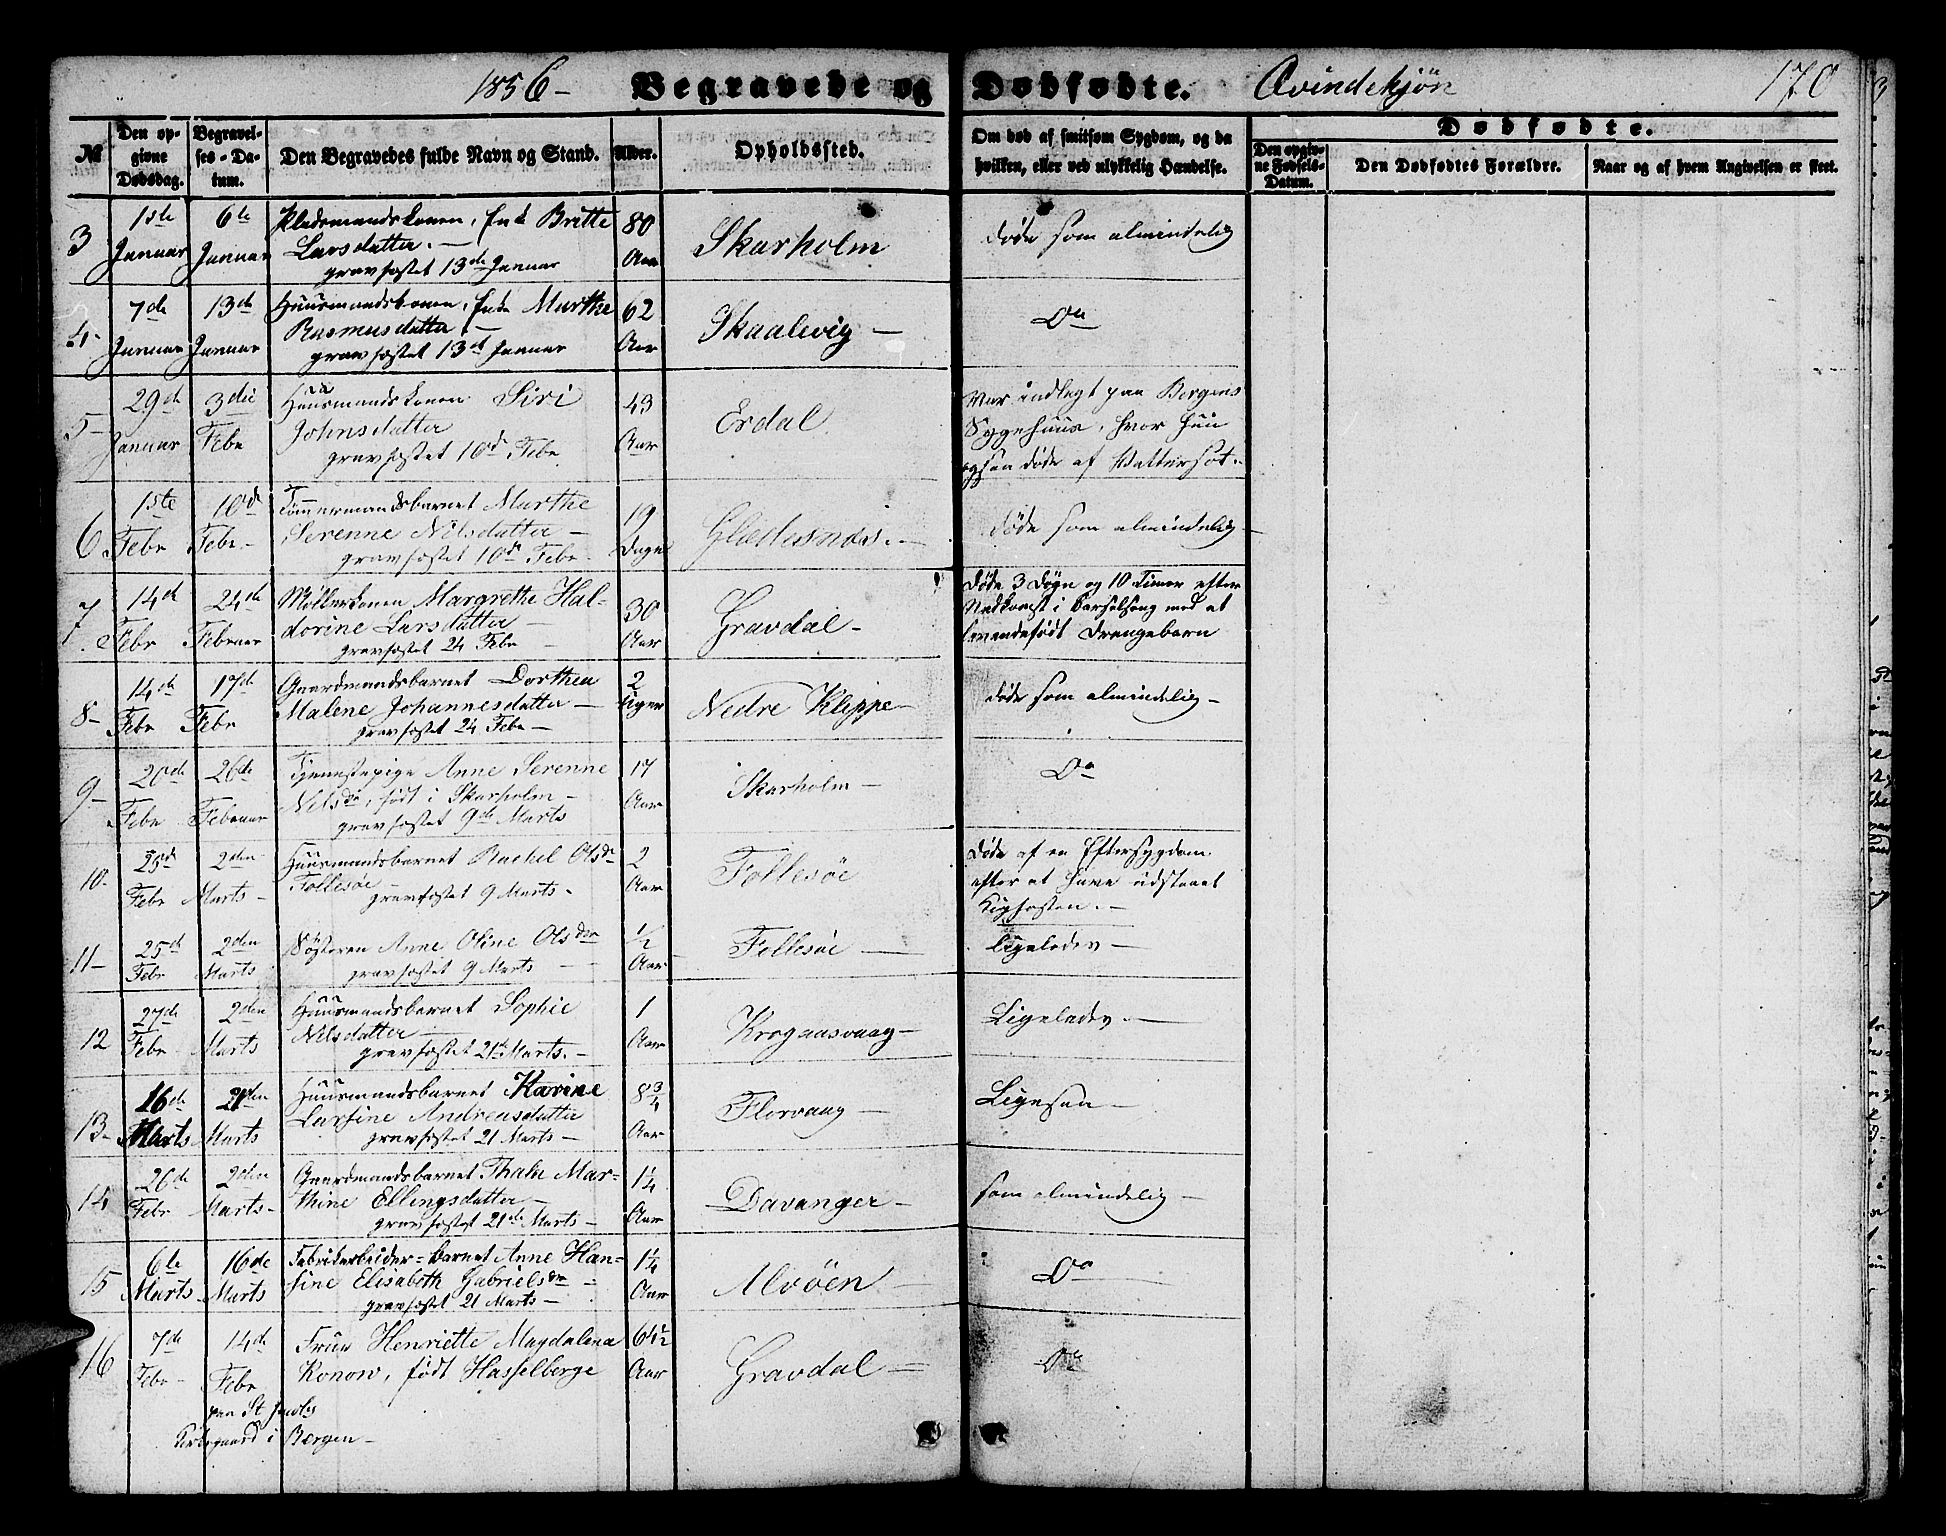 1856 - Begravede og Dødfødte. Qvindekjøn 170
№ Den opgivne Dødsdag. Begravelses-Datum. Den Begravedes fulde Navn og Stand. Alder. Opholdssted. Om død af smitsom Sygdom, og da hvilken, eller ved ulykkelig Hændelse. Dødfødte. Den opgivne Fødsels-Datum. Den Dødfødtes Forældre. Naar og af hvem Angivelsen er skeet.
3 1ste Januar 6te Januar Enke Britte
Larsdatter. -
gravfæstet 13de Januar
80 Aar Skarholm døde som almindelig
4- 7de Januar 13de Januar Huusmandskonen, Enke Marthe
Rasmusdatter -
gravfæstet 13de Januar
62 Aar Skaalevig - Do
5- 29de Januar 3die Febr Huusmandskonen Siri
Johnsdatter
gravfæstet 10de Febr
43 Aar Erdal
Var indlagt paa Bergens
Sygehuus, hvor hun
ogsaa døde af Vattersot.
6 1ste Febr 10de Febr - Tømmermandsbarnet Marthe
Serenne Nilsdatter -
gravfæstet 10de Febr -
19 Dage døde som almindelig -
7 14de Febr 24de Februar Møllerkonen Margrethe Hal-
dorine Larsdatter -
gravfæstet 24 Febr -
30 Aar Gravdal -
døde 3 Døgn og 10 Timer efter
Nedkomst i Barselseng med et
levendefødt Drengebarn
8- 14de Febr 17de Febr Gaardmandsbarnet Dorthea
Malene Johannesdatter -
gravfæstet 24 Febr -
2 Uger Nedre Kleppe - døde som almindelig -
9- 20de Febr 26de Februar Tjenestepige Anne Serenne
Nilsdr, født i Skarholm -
gravfæstet 9de Marts
17 Aar Skarholm - Do
10- 23de Febr 2den Marts - Huusmandsbarnet Rachel Olsdr
Follesøe -
gravfæstet 9 Marts -
2 Aar Follesøe
Døde af en Eftersygdom
efter at have udstaaet
Kighosten. -
11- 25de Febr 2den Marts Søsteren Anne Oline Olsdr
gravfæstet 9 Marts -
1/2 Aar Follesøe - ligeledes -
12 27de Febr - 2den Marts Huusmandsbarnet Sophie
Nilsdatter -
gravfæstet 21de Marts. -
1 Aar Krogaasvaag - Ligeledes. -
13- 16de Marts 21den Marts Huusmandsbarnet Karine
Larsine Andreasdatter
gravfæstet 21 Marts -
8 3/4 Aar Florvaag - Ligesaa -
14 26de Febr 2den Marts - Gaardmandsbarnet Thale Mar-
thine Ellingsdatter -
gravfæstet 21de Marts -
1 1/4 Aar Davanger - som almindelig -
15 6te Marts 16de Marts Fabrikarbeider-barnet Anne Han-
sine Elisabeth Gabrielsdr -
gravfæstet 21 Marts -
1 1/4 Aar Alvøen - Do
16 7de Febr - 14de Febr Frue Henriette Magdalena
Konow, født Hasselberge
64 1/2 Aar Gravdal - Do
paa St Jacobs
Kirkegaard i Bergen -